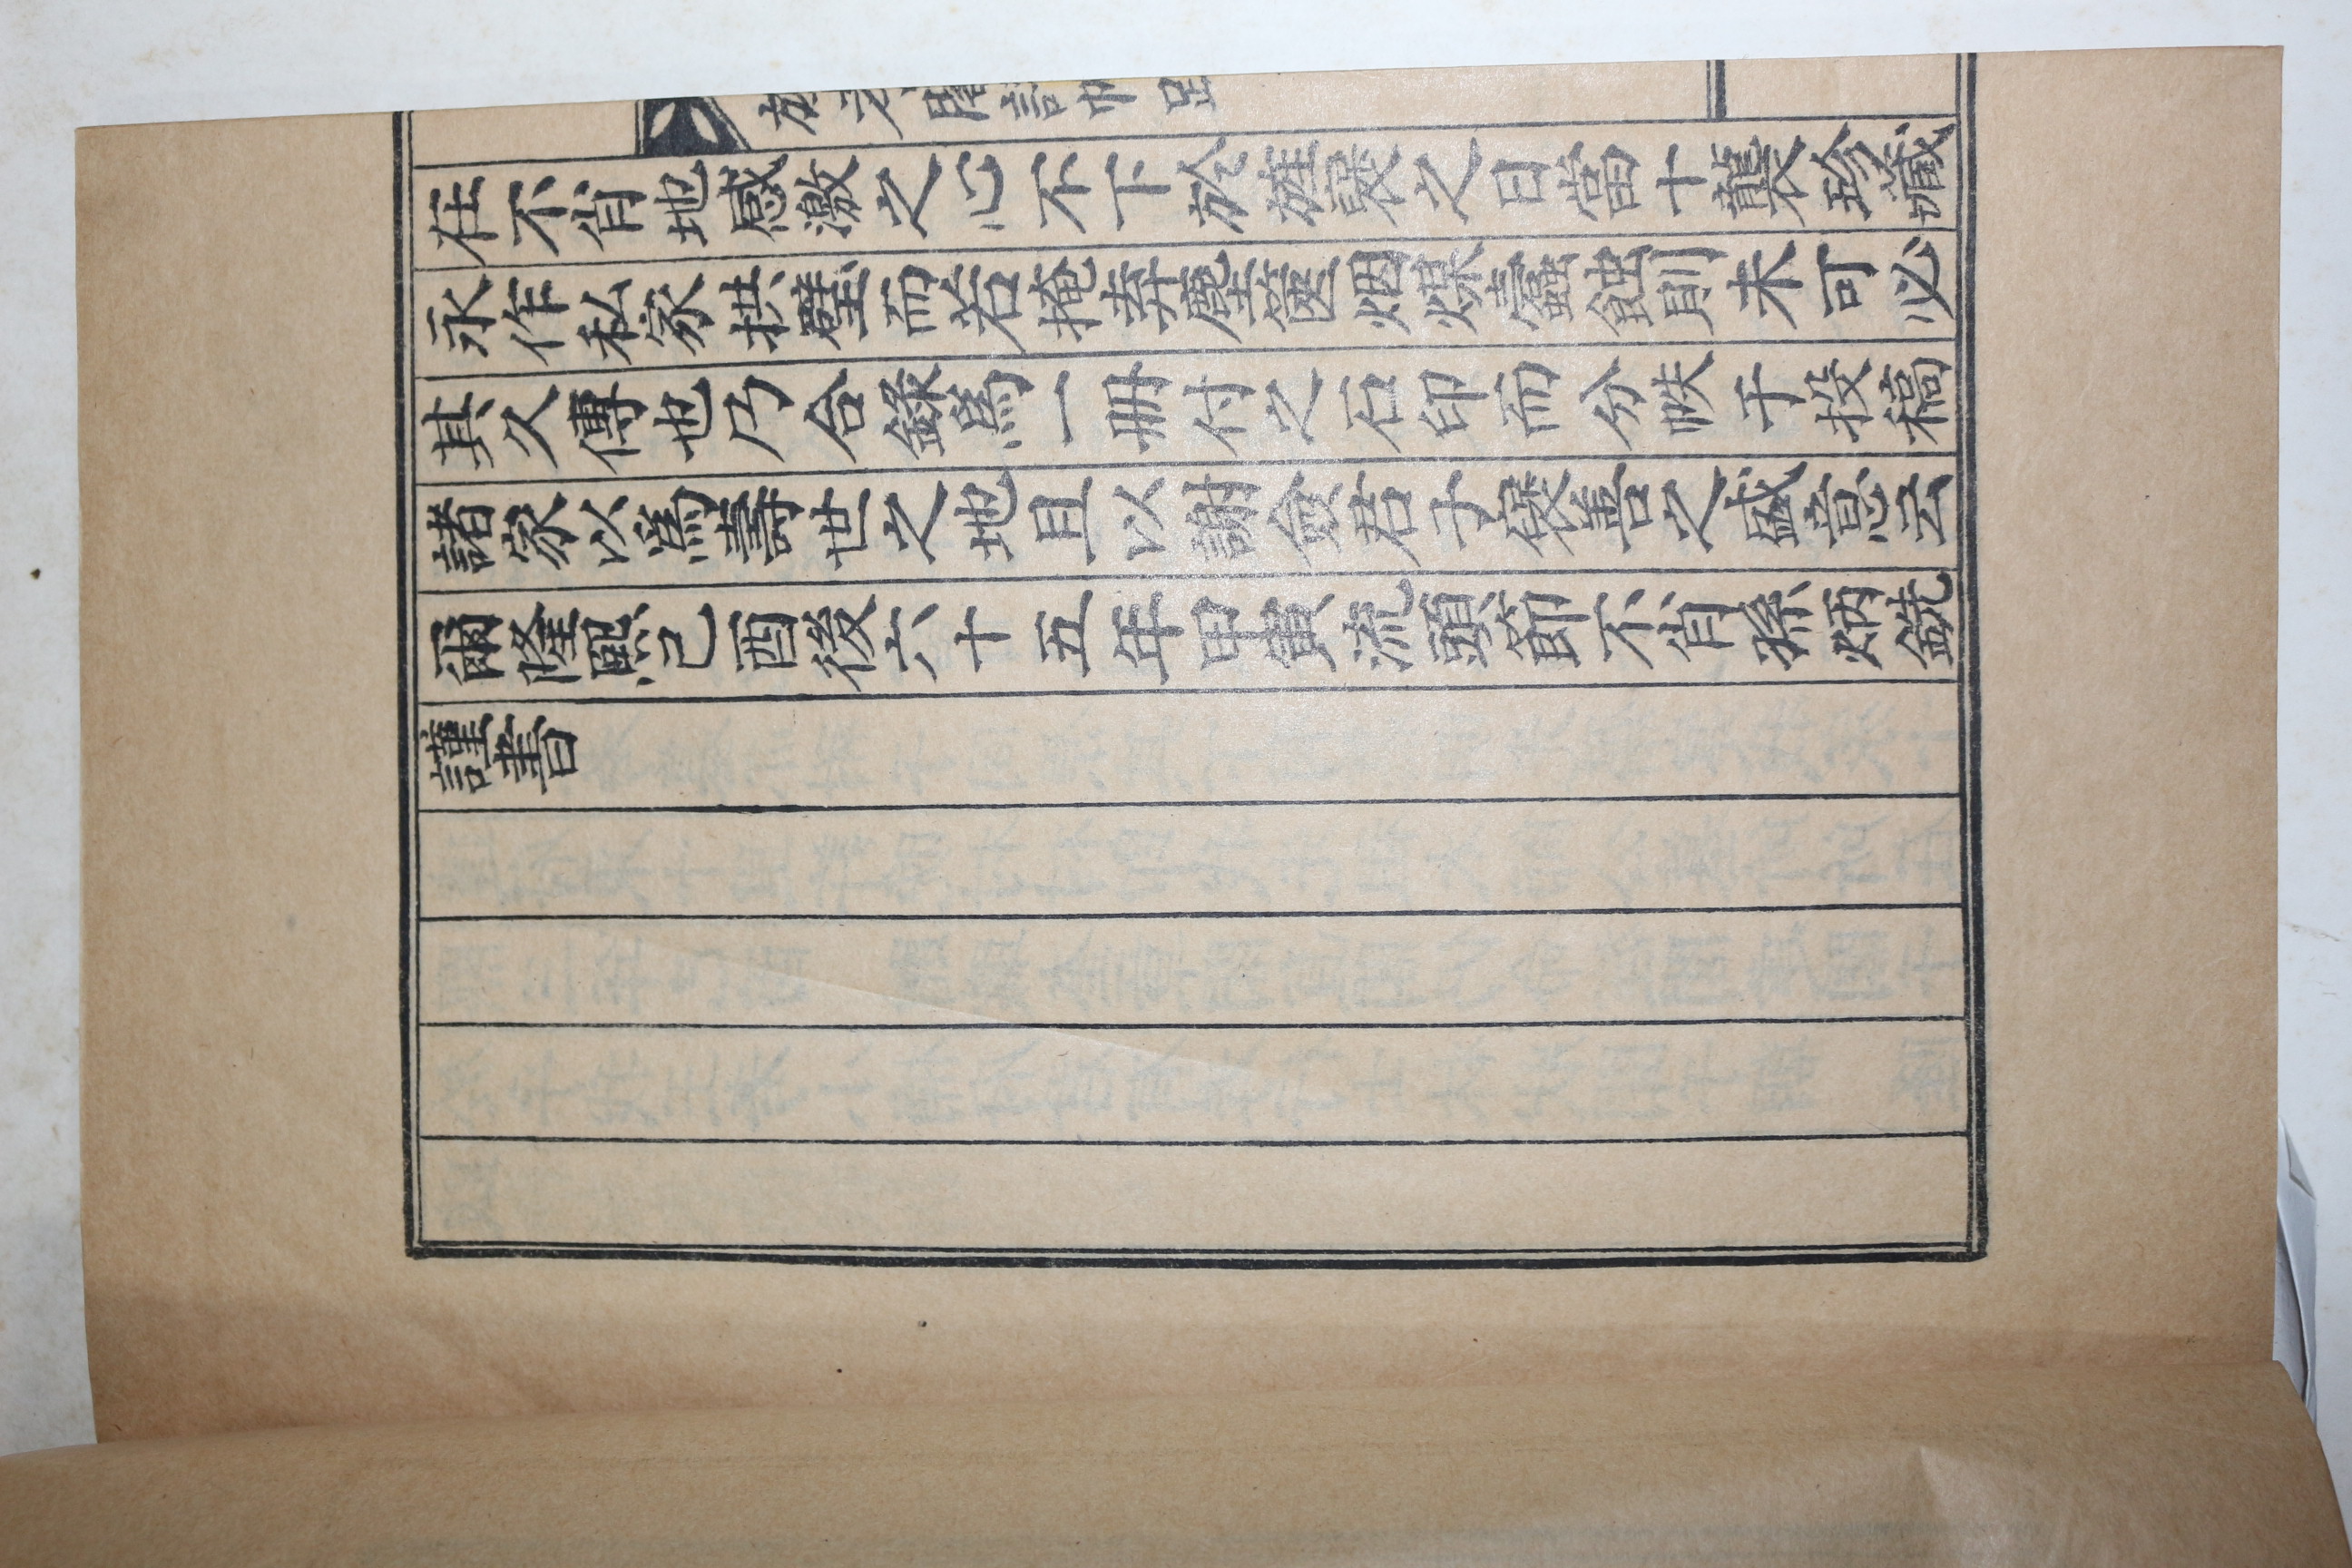 旌孝詩帖跋
在不肖地感激之心不下於旌褒之日當十襲珍藏
永作私家拱璧而若掩弆塵篋烟煤蠹蝕則未可必
其久傳也乃合錄爲一冊付之石印而分帙于投稿
諸家以爲壽世之地且以謝僉君子褒善之盛意云
爾隆熙己酉後六十五年甲寅流頭節不肖孫炳銑
謹書